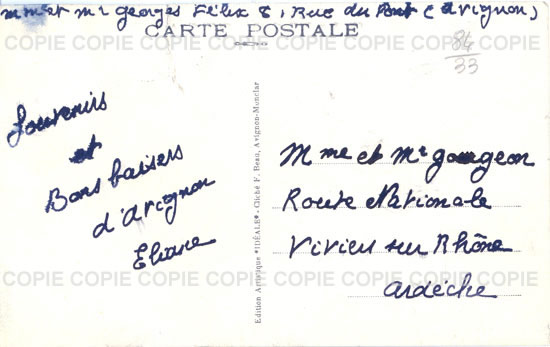 mme et mr georges Félix 8, Rue du Pont (avignon)
CARTE POSTALE
84
33
Souvenirs
et
Bons baisers
d'avignon
Eliane
Edition Artistique "IDÉALE" - Cliché F. Beau, Avignon-Monclar
Mme et Mr gougeon
Route Nationale
Viviers sur Rhône
ardèche
COPIE COPIE COPIE COPIE COPIE COPIE COPIE COPIE
COPIE COPIE COPIE COPIE COPIE COPIE COPIE COPIE